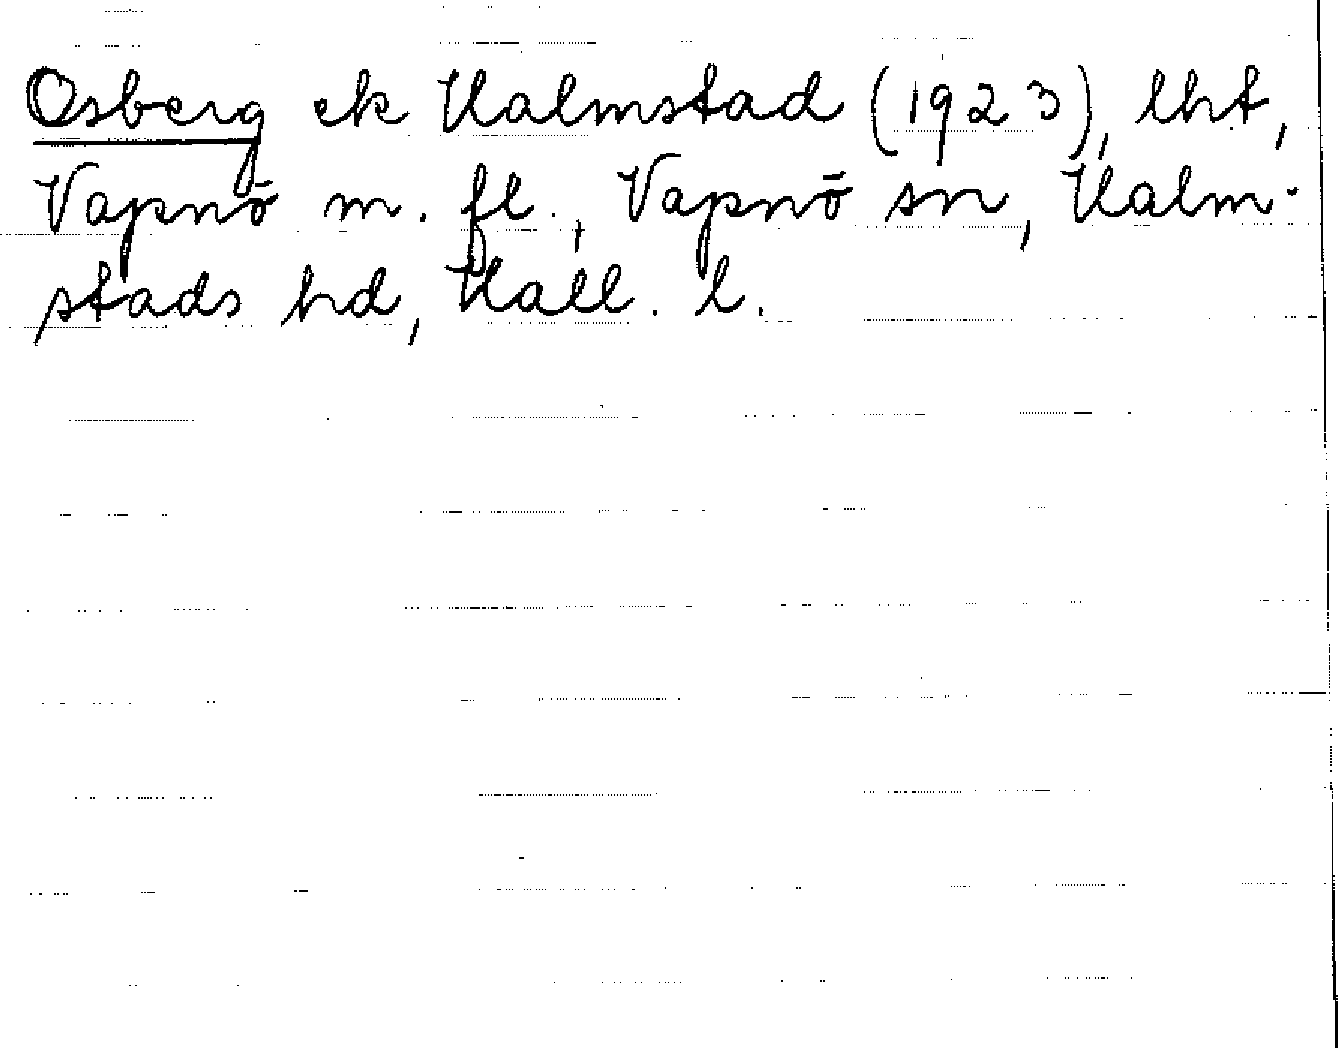 Osberg ek Halmstad (1923), lht,
Vapnö m. fl., Vapnö sn, Halm-
stads hd, Hall. l.